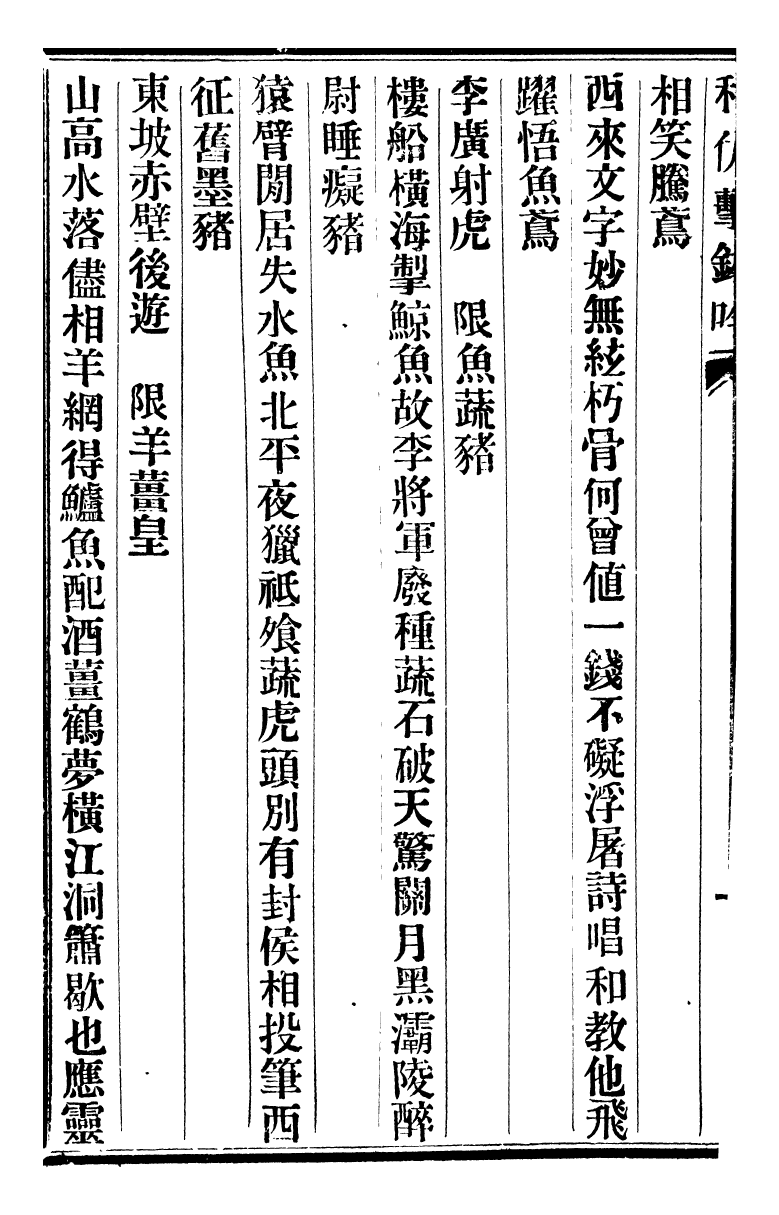 相笑騰鳶
西來文字妙無絃朽骨何曾値一錢不礙浮屠詩唱和教他飛
躍悟魚鳶
李廣射虎　限魚蔬豬
樓船橫海掣鯨魚故李將軍廢種蔬石破天驚關月黑灞陵醉
尉睡癡豬
猿臂閒居失水魚北平夜獵祗飧蔬虎頭別有封侯相投筆西
征舊墨豬
東坡赤壁後遊　限羊薑皇
山高水落儘相羊網得鱸魚配酒薑鶴夢橫江洞簫歇也應靈